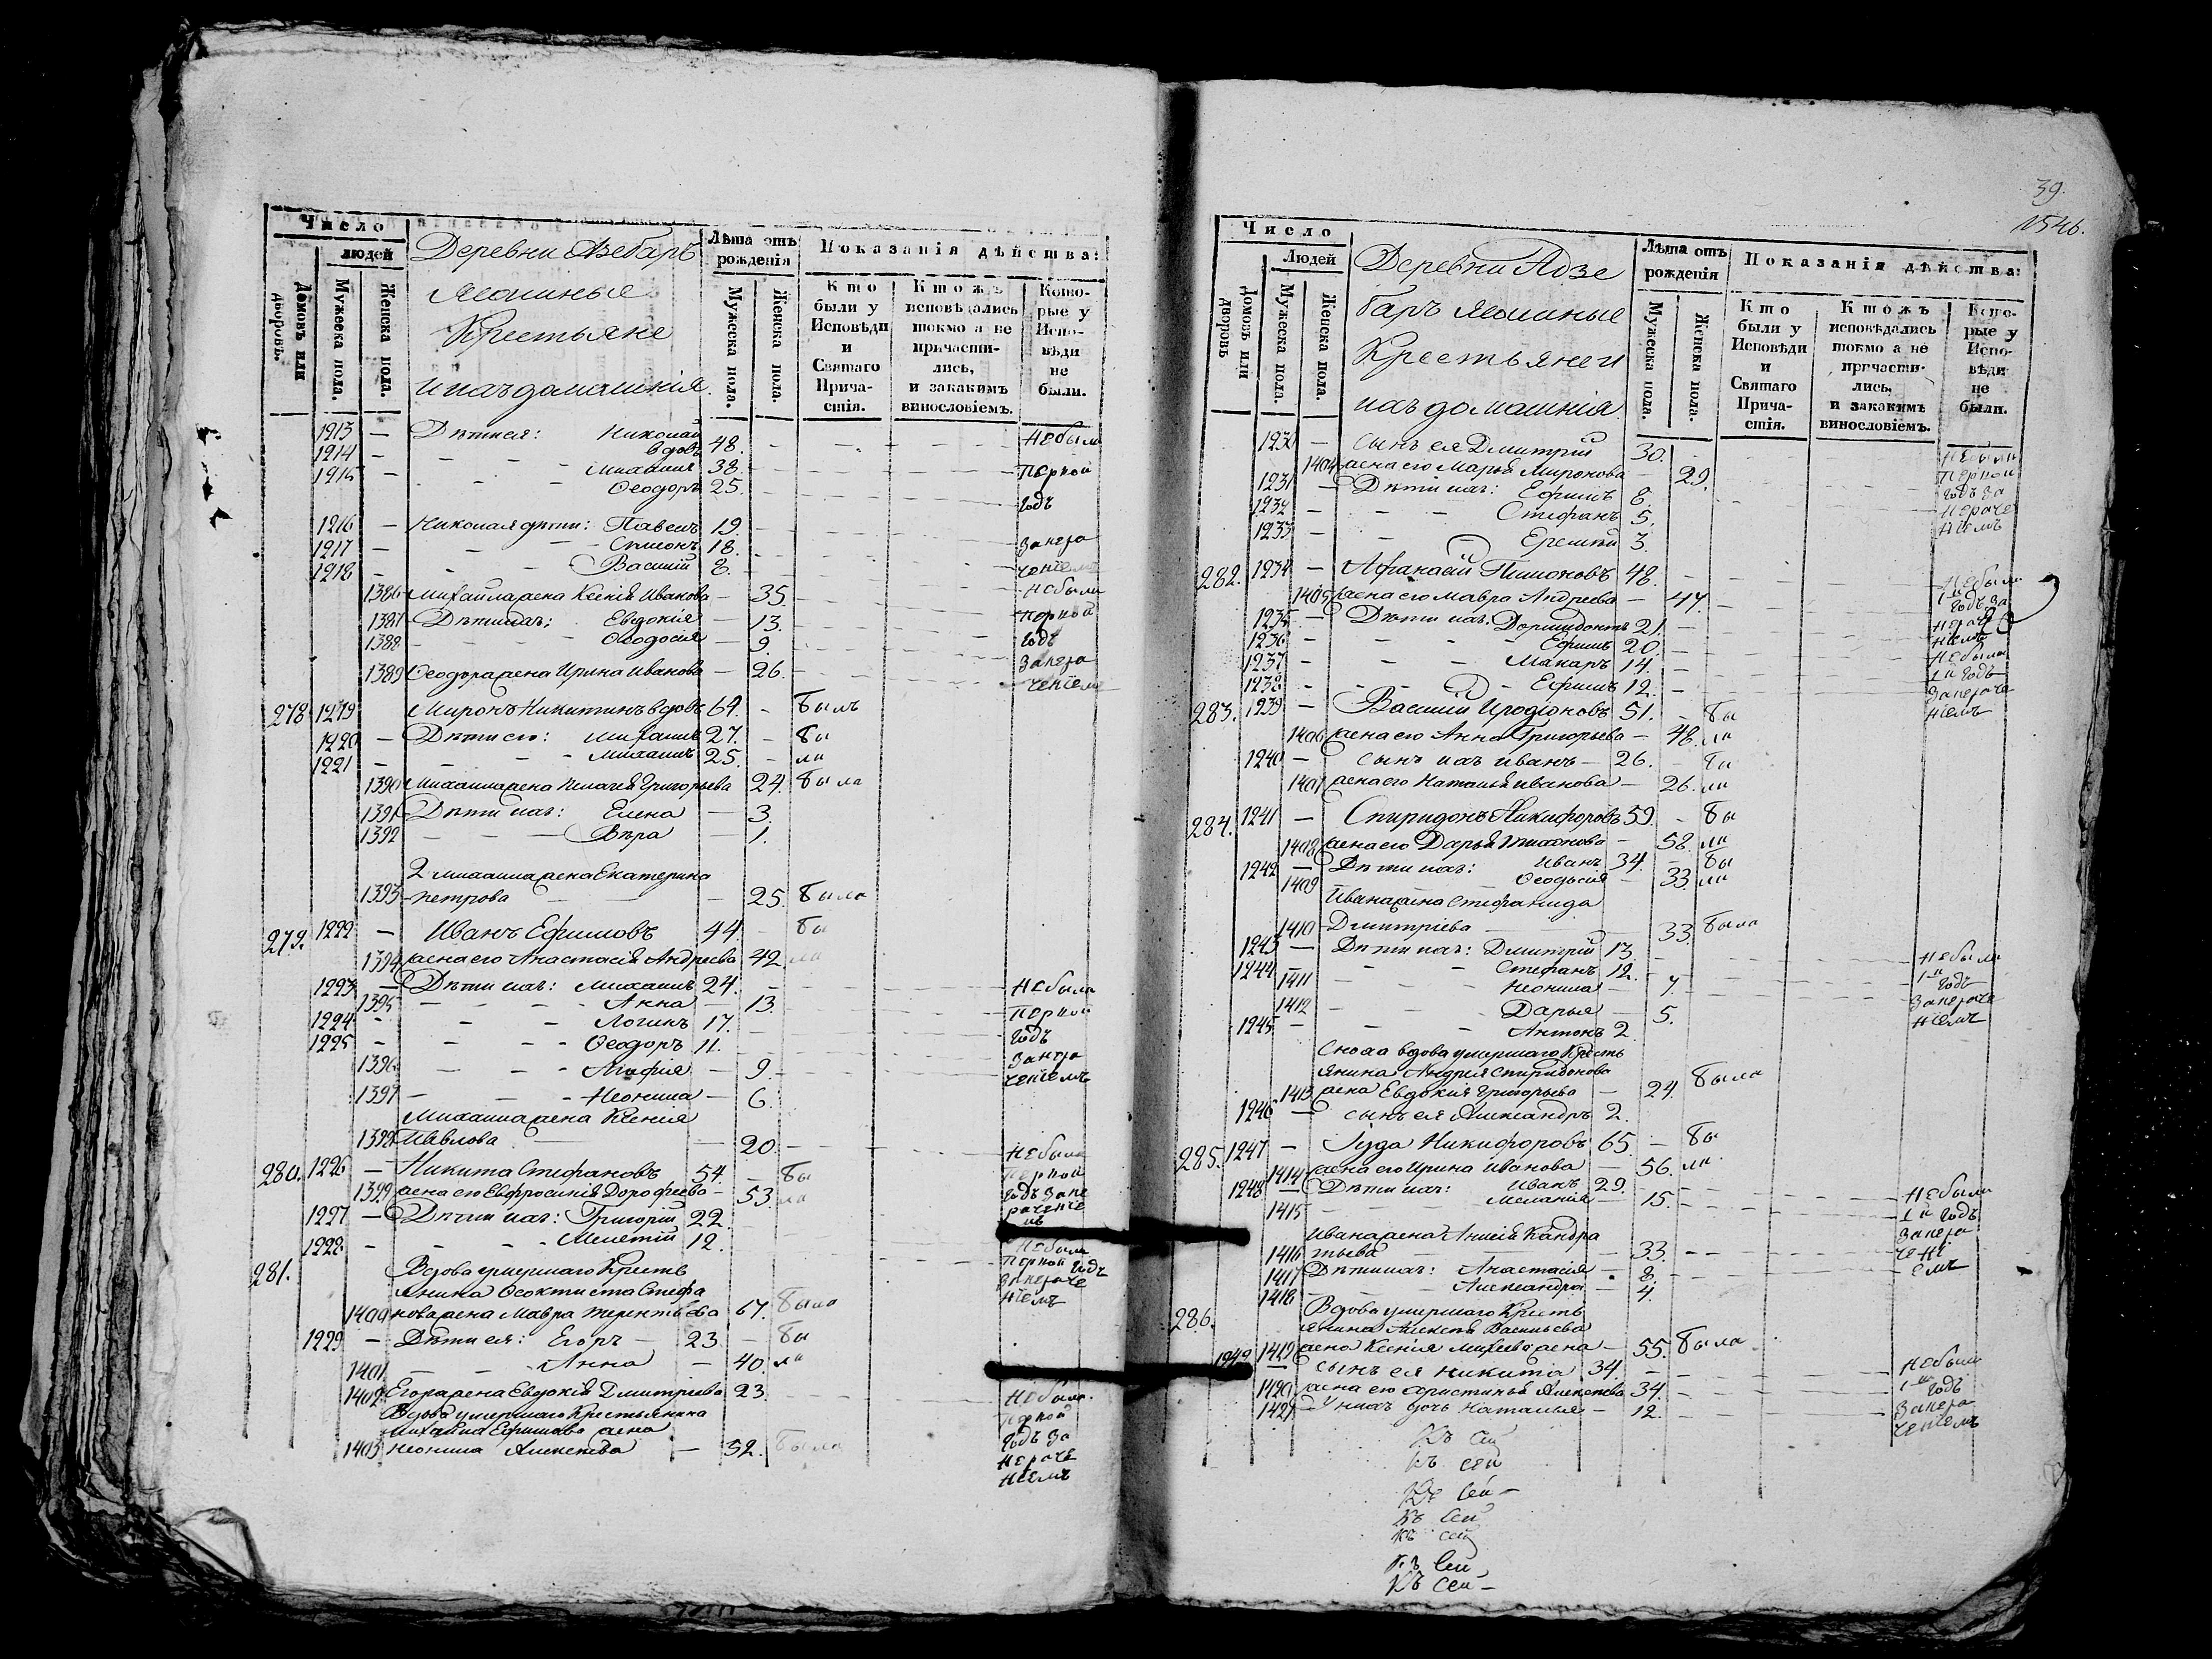 Число
людей
Домовъ или дворовъ.
Мужеска пола.
Женска пола.
Деревни Азебаръ
Ясашные
Крестьяне
и ихъ домашнія.
Лѣта отъ рожденія
Мужеска пола.
Женска пола.
Показанія дѣйства:
Кто были у Исповѣди и Святаго Причастія.
Ктожъ исповѣдались токмо а не причастились, и закакимъ винословіемъ.
Которые у Исповѣди не были.
1213 — Дѣти ея: Николай
1214 — вдовъ 48. Небыли
1215 — Михаилъ 38. первой
Ѳеодоръ 25. годъ
1216 — Николая дѣти: Павелъ 19.
1217 — Симонъ 18. занера
1218 — Василій 8. ченіемъ
1386 Михаила жена Ксенія Иванова — 35. небыли
1387 Дѣти ихъ: Евдокія — 13. первой
1388 Ѳеодосія — 9. годъ
1389 Ѳеодора жена Ирина Иванова — 26. занера
ченіемъ
278 1219 Миронъ Никитинъ вдовъ 64. - былъ
1220 — Дѣти его: Михаилъ 27. - бы
1221 — Михаилъ 25. - ли
1390 Михаила жена Пелагея Григорьева 24. была
1391 Дѣти ихъ: Елена — 3.
1392 — Вѣра — 1.
2 Михаила жена Екатерина
1393 петрова — 25. была
279. 1222 — Иванъ Ефимовъ 44. - бы
1394 жена его Анастасія Андреева 42 ли
1223 — Дѣти ихъ: Михаилъ 24. Небыли
1395 — Анна — 13. первой
1224 — Логинъ 17. годъ
1225 — Ѳеодоръ 11. занера
1396 — Агафія — 9. ченіемъ
1397 — Неонила — 6.
Михаила жена Ксенія
1398 Павлова — 20. небыла
280. 1226 — Никита Стефановъ 54. - бы первой
1399 жена его Евфросинія Дорофеева — 53. ли годъ зане
1227 — Дѣти ихъ: Григорій 22. раченіе
1228 — Мелетій 12. мъ
небыли
281. Вдова умершаго Кресть первой годъ
янина Ѳеоктиста Стефа занераче
1400 нова жена Мавра терентьева 67. была ніемъ
1229 — Дѣти ея: Егоръ — 23 — бы
1401 — Анна — 40. ли
1402 Егора жена Евдокія Дмитріева 23. небыла
Вдова умершаго Крестьянина первой
Михаила Ефимова жена годъ за
1403 неонила Алексѣева — 52. была нераче
ніемъ
39.
1546.
Число
Людей
Домовъ или дворовъ
Мужеска пола.
Женска пола.
Деревни Адзе
баръ ясашные
Крестьяне и
ихъ домашнія
Лѣта отъ рожденія
Мужеска пола.
Женска пола.
Показанія дѣйства:
Кто были у Исповѣди и Святаго Причастія.
Ктожъ исповѣдались токмо а не причастились, и закакимъ винословіемъ.
Которые у Исповѣди не были.
1230 — сынъ ея Дмитрій 30. небыли
1404 жена его Марья Миронова 29. первой
1231 — Дѣти ихъ: Ефимъ 8. годъ за
1232 — Стефанъ 5. нераче
1233 — Еремѣй 3. ніемъ
282. 1234 — Афанасій Пимоновъ 48. небыли
1405 жена его Мавра Андреева — 47. 1й годъ за
1235 — Дѣти ихъ: Дормидонтъ 21. нераче
1236 — Ефимъ 20. ніемъ
1237 — Макаръ 14. небыли
1238 — Ефимъ 12. 1й годъ
283. 1239 — Василій Иродіоновъ 51. - бы занераче
1406 жена его Анна Григорьева — 48. ли ніемъ
1240 — сынъ ихъ иванъ — 26. - бы
1407 жена его Наталья иванова — 26. ли
284. 1241 — Спиридонъ Никифоровъ 59. - бы
1408 жена его Дарья — 58. ли
1242 — Дѣти ихъ: иванъ 34. - бы
1409 Ѳеодосія — 33. ли
Ивана жена Стефанида
1410 Дмитріева — 33. была
1243 — Дѣти ихъ: Дмитрій 13. небыли
1244 — Стефанъ 12. 1й годъ
1411 неонила — 7. занераче
1412 Дарья — 5. ніемъ
1245 — Антонъ 2.
Сноха вдова умершаго Кресть
янина Андрея Спиридонова
1413 жена Евдокія Григорьева — 24. была
1246 — сынъ ея Александръ 2.
285. 1247 — Іуда Никифоровъ 65. - бы
1414 жена его Ирина Иванова — 56. ли
1248 — Дѣти ихъ: Иванъ 29. небыли
1415 Меланія — 15. 1й годъ
Ивана жена Кандра занера
1416 тьева — 33. чені
1417 Дѣти ихъ: Анастасія — 8. емъ
1418 Александра — 4.
286. Вдова умершаго Кресть
янина Алексѣя Васильева
1419 жена Ксенія — 55. была
1249 — сынъ ея никита 34. небыли
1420 жена его христинья Алексѣева 34. 1й годъ
1421 У нихъ дочь наталья — 12. занера
ченіемъ
Къ сей
къ сей
Къ сей
къ сей
къ сей
къ сей
Къ сей